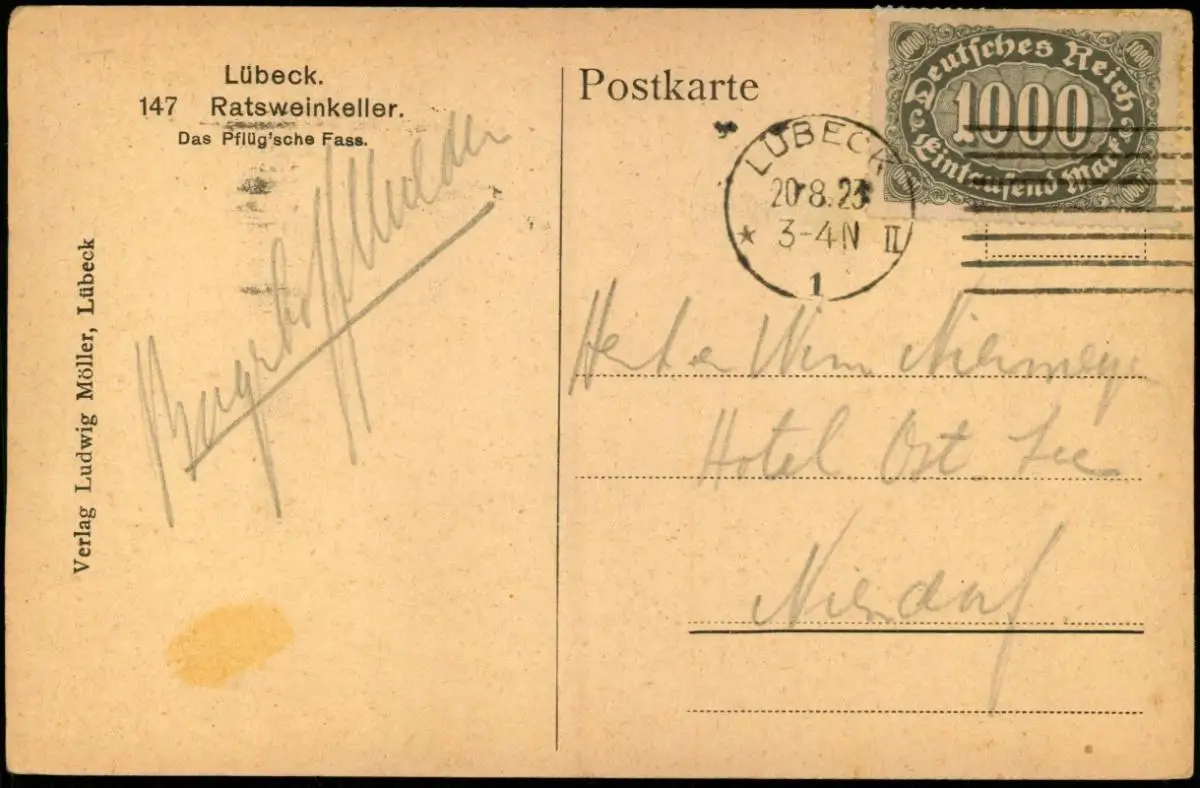 Lübeck.
147 Ratsweinkeller.
Das Pflüg'sche Fass.
Verlag Ludwig Möller, Lübeck
Postkarte
1000 1000
Deutsches Reich
1000
Eintausend Mark
LÜBECK
20.8.23
3-4N II
1
Niemeyer
Hotel Ost See
Niendorf